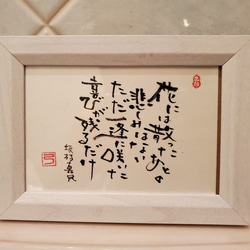 花には散ったあとの
悲しみはない
ただ一途に咲いた
喜びが残るだけ
坂村真民